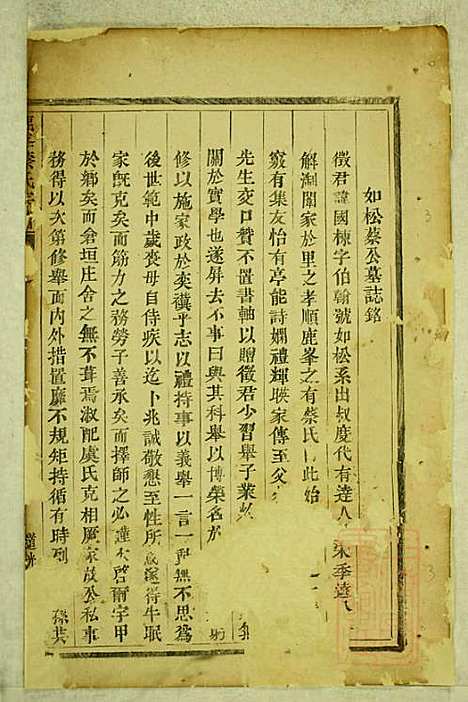 如松蔡公墓誌銘
徵君諱國棟字伯翰號如松系出叔度代有達人 宋季達
解淛閫家於里之孝順鹿峯之有蔡氏 此始
竅有集友怡有亭能詩嫻禮輝暎家傳至父
先生交口贊不置書軸以贈徵君少習舉子業
關於實學也遂屏去不事曰與其科舉以博榮名
修以施家政於奕禩乎志以禮持事以義舉一言一 無不思爲
後世範中歲喪母自侍疾以迄卜兆誠敬懇至性所 遂得牛眠
家既克矣而筋力之務勞子善承矣而擇師之必謹 啓爾宇甲
於鄉矣而倉垣庄舍之無不葺焉淑配虞氏克相厥家故公私事
務得以次第修舉而内外措置靡不規矩持循有時 孫其
蔡氏